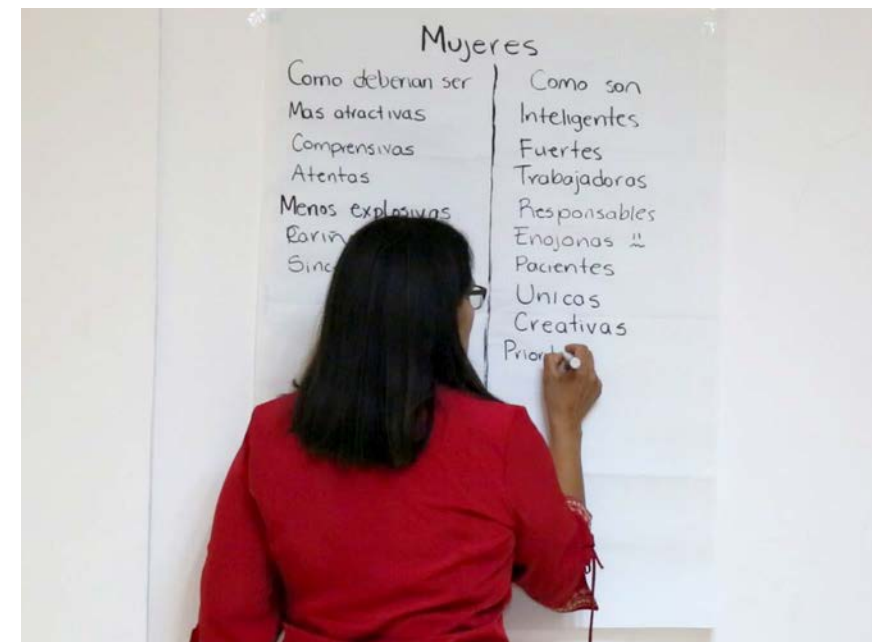 Mujeres
Como deberian ser
Mas atractivas
Comprensivas
Atentas
Menos explosivas
Como son
Inteligentes
Fuertes
Trabajadoras
Responsables
Enojonas
Pacientes
Unicas
Creativas